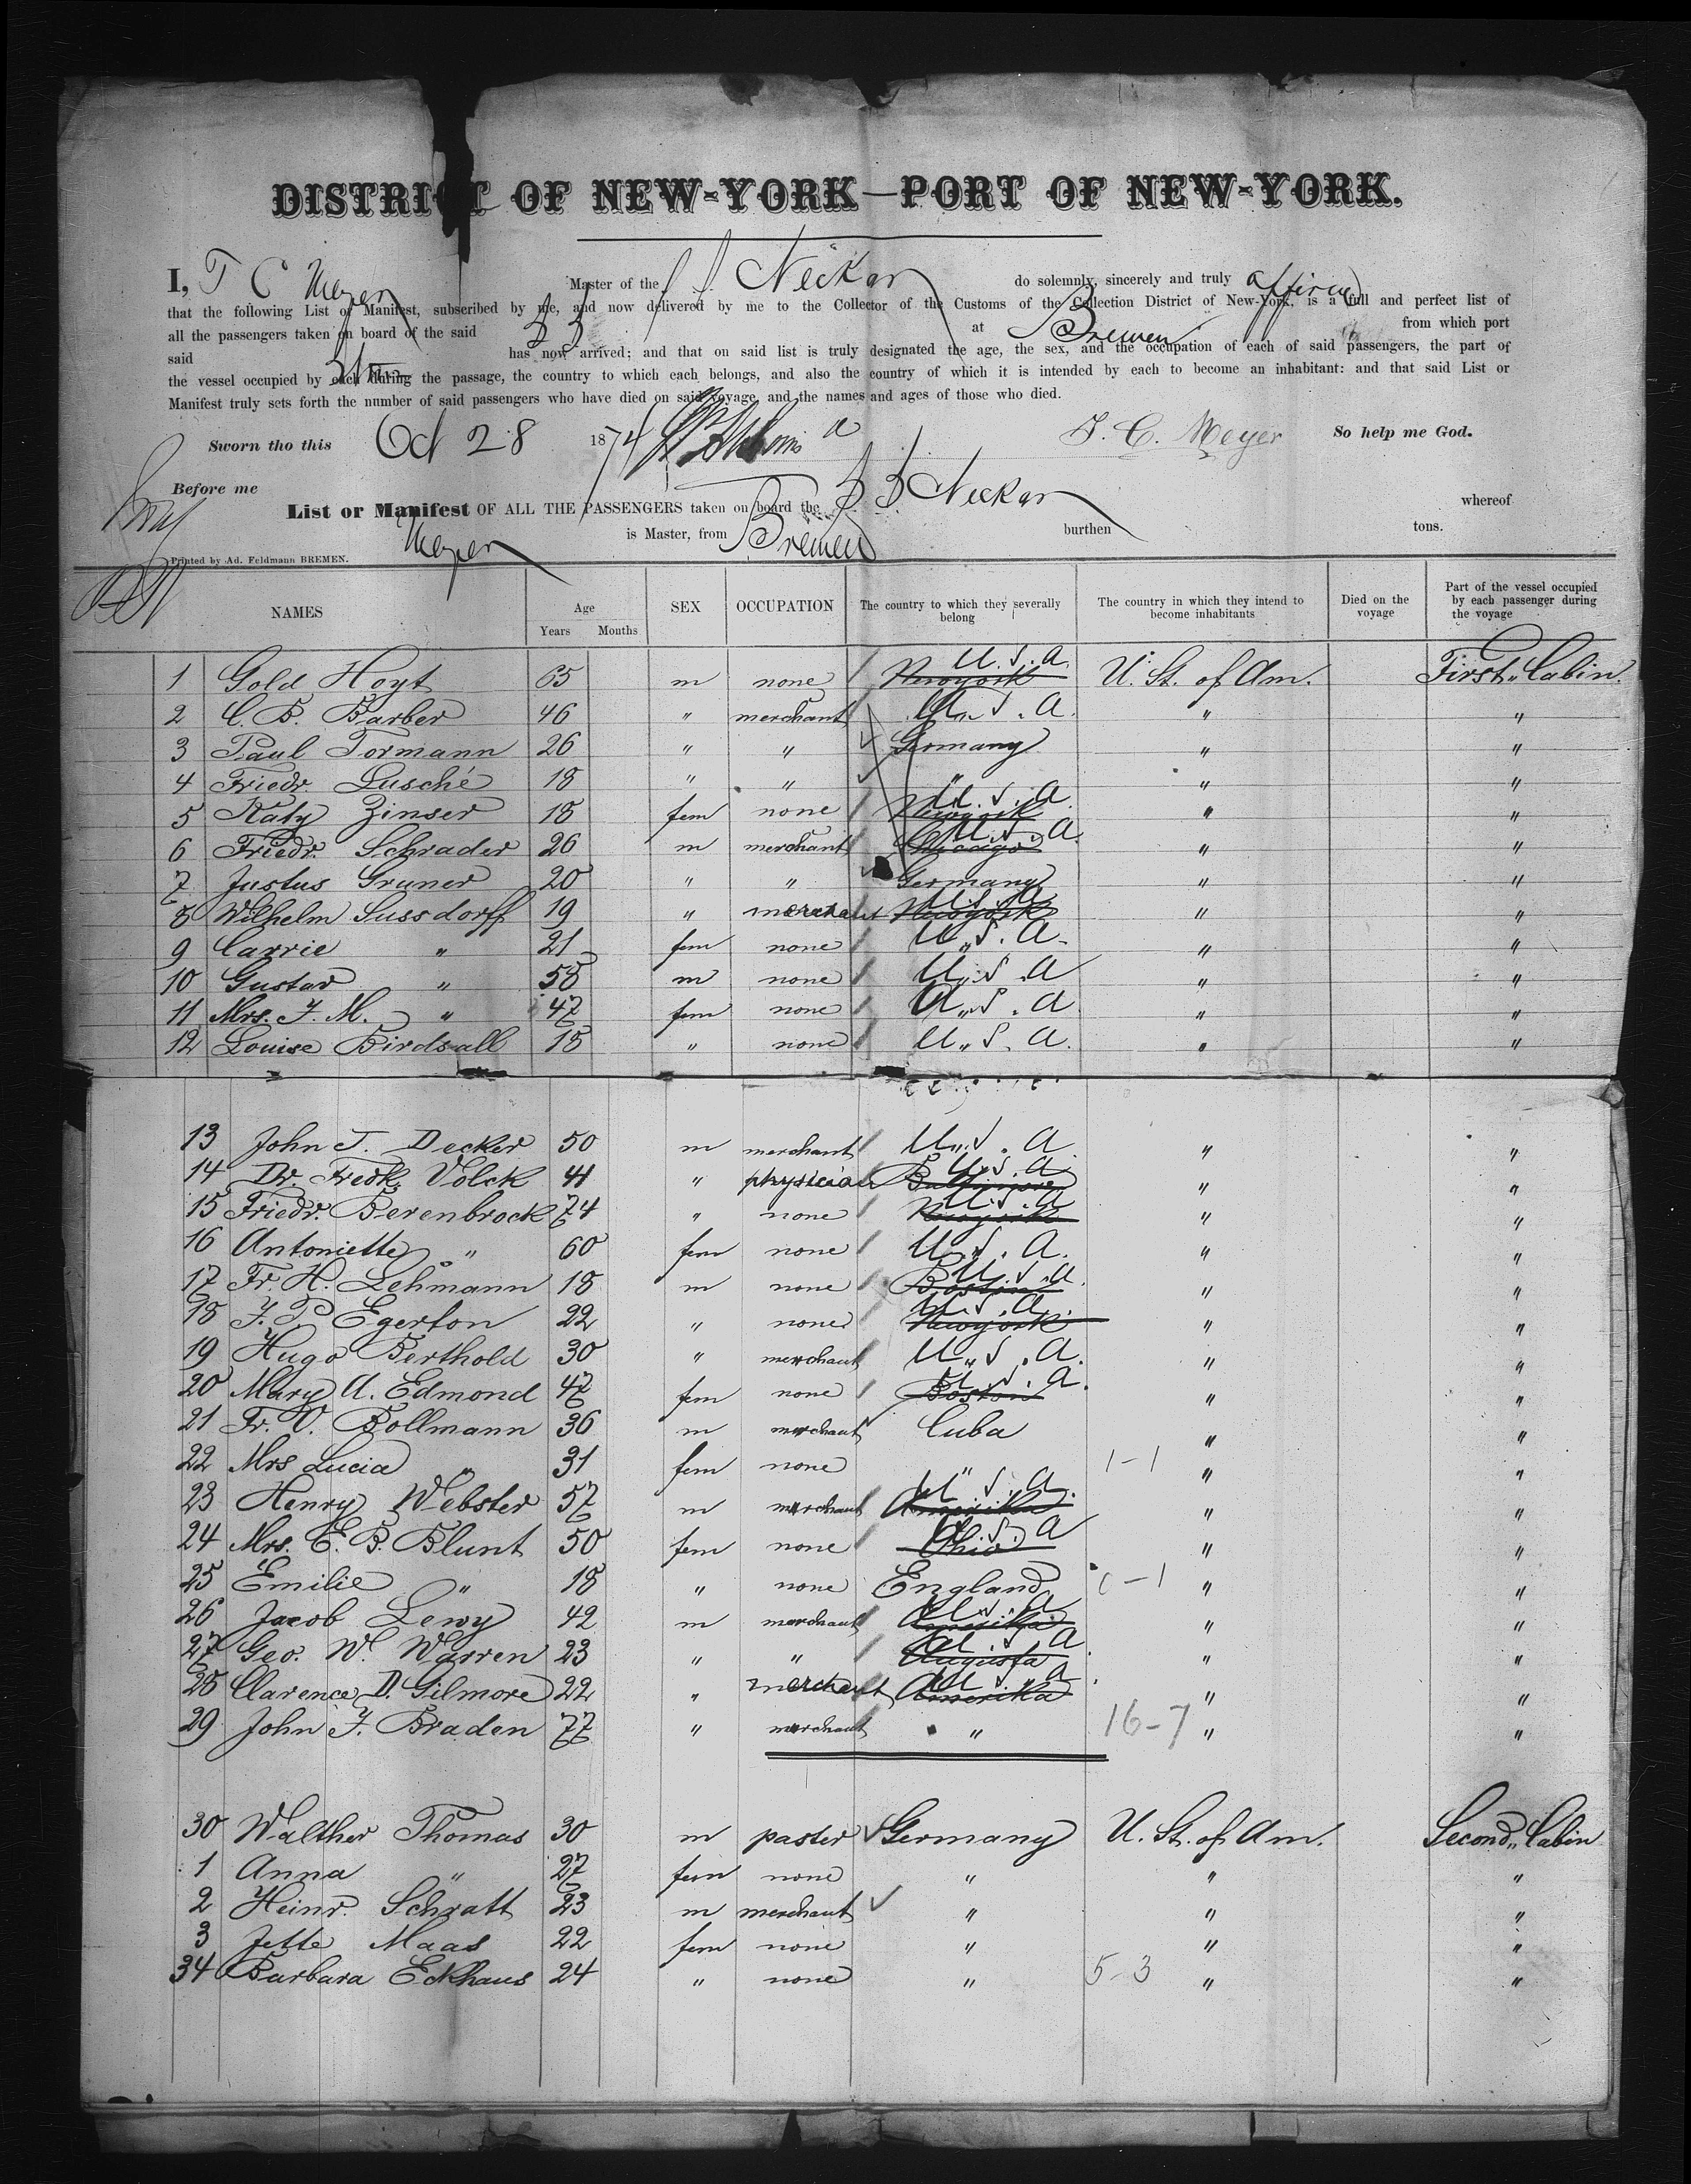 DISTRICT OF NEW-YORK—PORT OF NEW-YORK.
I, T C Meyer Master of the S. S. Neckar do solemnly, sincerely and truly affirm
that the following List or Manifest, subscribed by me, and now delivered by me to the Collector of the Customs of the Collection District of New-York, is a full and perfect list of
all the passengers taken on board of the said SS at Bremen from which port
said has now arrived; and that on said list is truly designated the age, the sex, and the occupation of each of said passengers, the part of
the vessel occupied by each during the passage, the country to which each belongs, and also the country of which it is intended by each to become an inhabitant: and that said List or
Manifest truly sets forth the number of said passengers who have died on said voyage, and the names and ages of those who died.
Sworn tho this Oct 28 1874 J. C. Meyer So help me God.
Before me
List or Manifest OF ALL THE PASSENGERS taken on board the S S Neckar whereof
Meyer is Master, from Bremen burthen tons.
Printed by Ad. Feldmann BREMEN.
NAMES Age Years Months SEX OCCUPATION The country to which they severally belong The country in which they intend to become inhabitants Died on the voyage Part of the vessel occupied by each passenger during the voyage
1 Gold Hoyt 65 m none Newyork U.S.A. U. St. of Am. First Cabin.
2 C. B. Barber 46 " merchant U.S.A. " "
3 Paul Tormann 26 " " Germany " "
4 Friedr Lusché 18 " " " " "
5 Katy Zinser 18 fem none Newyork U.S.A. " "
6 Friedr. Schrader 26 m merchant Chicago U.S.A. " "
7 Justus Gruner 20 " " Germany " "
8 Wilhelm Sussdorff 19 " merchant Newyork U.S.A. " "
9 Carrie " 21 fem none U.S.A. " "
10 Gustav " 58 m none U.S.A " "
11 Mrs. F. M. " 47 fem none U.S.A " "
12 Louise Birdsall 18 " none U.S.A. " "
13 John T. Decker 50 m merchant U.S.A " "
14 Dr. Fredk. Volck 41 " physician Baltimore U.S.A. " "
15 Friedr. Berenbrock 74 " none Newyork U.S.A " "
16 Antoniette " 60 fem none U.S.A. " "
17 Fr. H. Lehmann 18 m none Boston U.S.A. " "
18 F. P. Egerton 22 " none Newyork U.S.A. " "
19 Hugo Berthold 30 " merchant U.S.A. " "
20 Mary A. Edmond 47 fem none Boston U.S.A. " "
21 Fr. V. Bollmann 36 m merchant Cuba " "
22 Mrs Lucia " 31 fem none " 1-1 " "
23 Henry Webster 57 m merchant Amerika U.S.A. " "
24 Mrs. E. B. Blunt 50 fem none Ohio U.S.A " "
25 Emilie " 18 " none England 0-1 " "
26 Jacob Lewy 42 m merchant Amerika U.S.A " "
27 Geo. W. Warren 23 " " Augusta U.S.A " "
28 Clarence D. Gilmore 22 " merchant Amerika U.S.A " "
29 John F. Braden 77 " merchant " 16-7 " "
30 Walther Thomas 30 m paster Germany U. St. of Am. Second Cabin
1 Anna " 27 fem none " " "
2 Heinr. Schratt 23 m merchant " " "
3 Jette Maas 22 fem none " " "
34 Barbara Eckhaus 24 " none " 5-3 " "